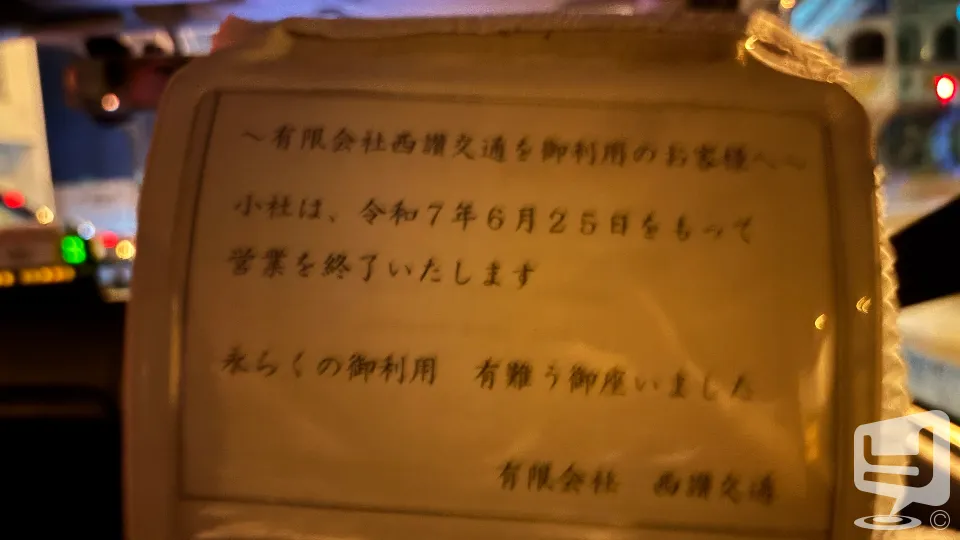 ～有限会社西讃交通を御利用のお客様へ～
小社は、令和７年６月２５日をもって
営業を終了いたします
永らくの御利用　有難う御座いました
有限会社　西讃交通